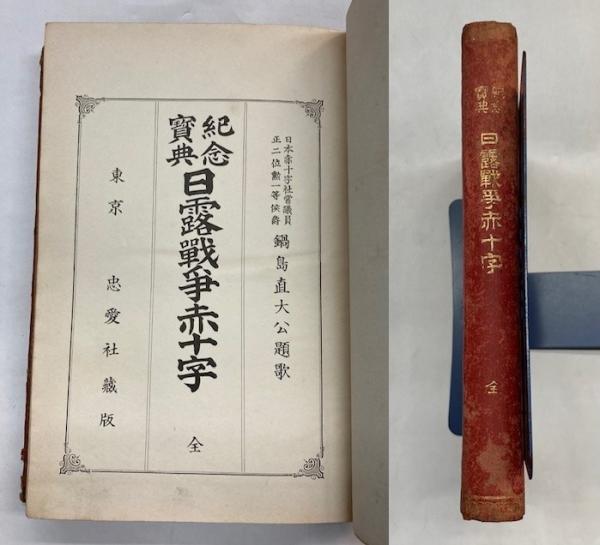 日本赤十字社常議員
正二位勲一等侯爵
鍋島直大公題歌
紀念
寶典
日露戰爭赤十字
全
東京
忠愛社藏版
紀念
寶典
日露戰爭赤十字
全